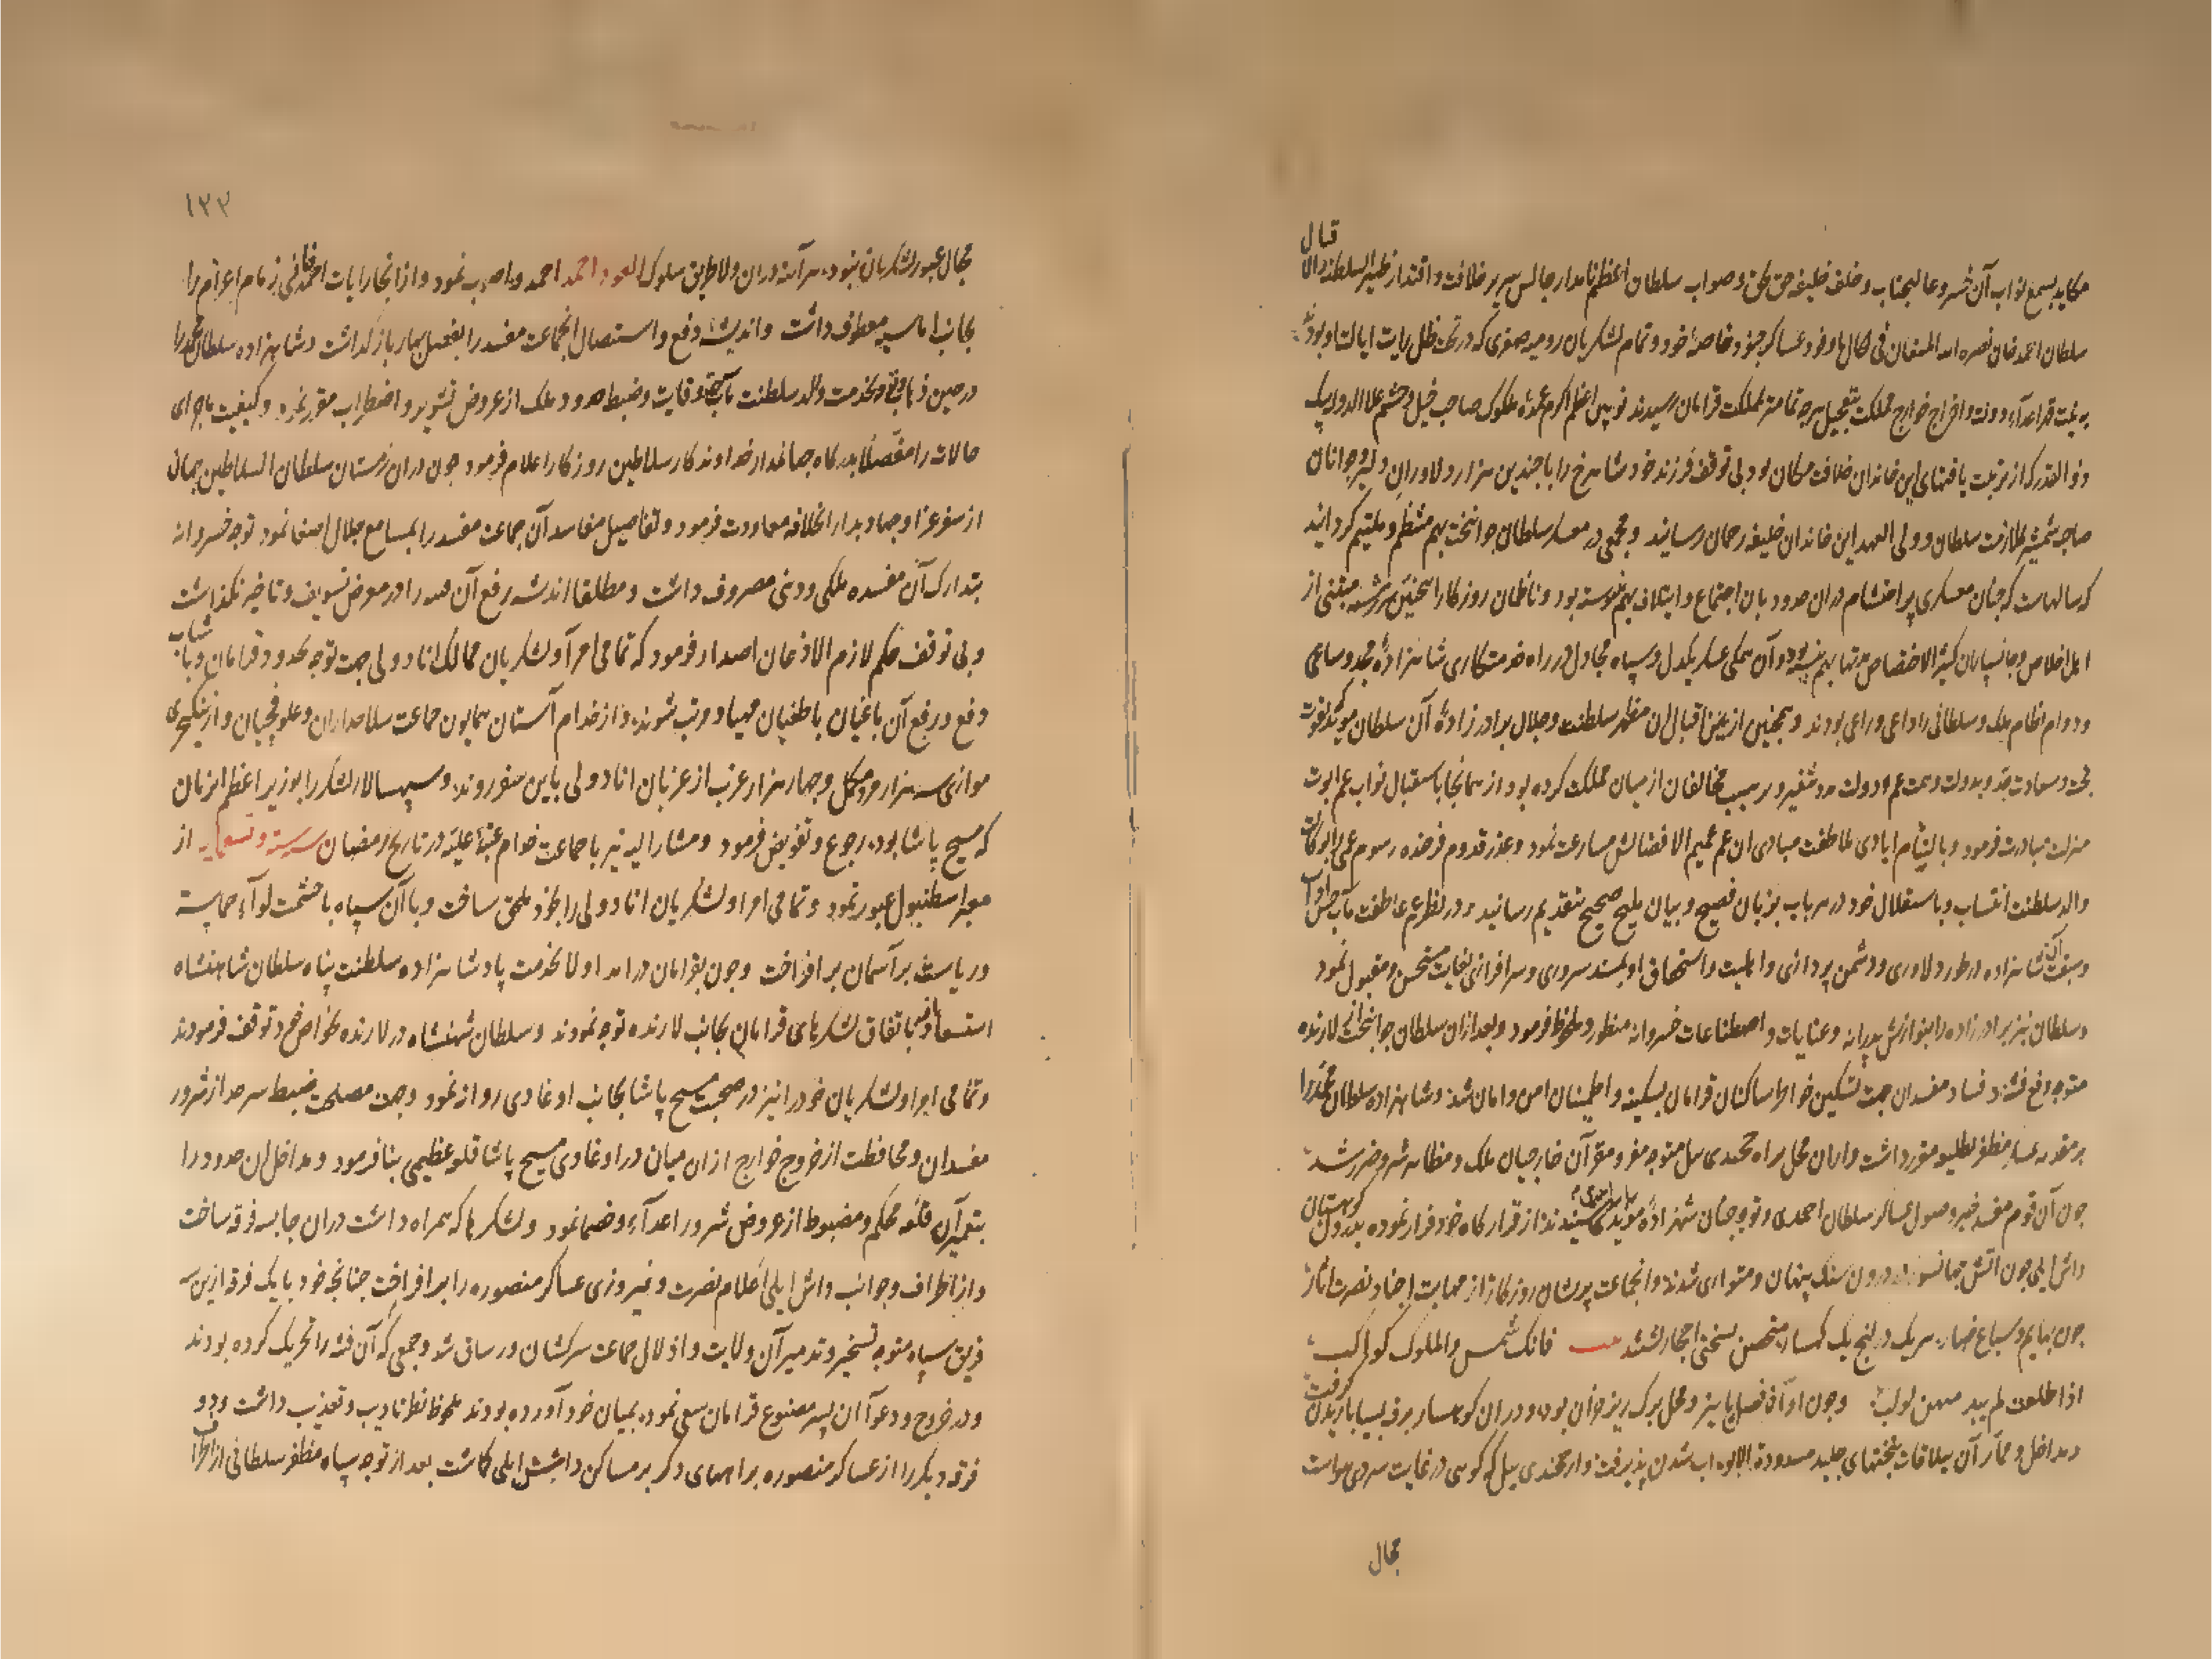 قبال
مکاید بسمع نواب آن خسرو عالیجناب و خلف خلیفه حق بحق و صواب سلطان اعظم نامدار جالس سریر خلافت و اقتدار ظهیر السلطنة والا
سلطان احمد خان نصره الله المنعان فی کل حال با وفود عساکر جنود خاصهٔ خود و تمام لشکریان رومیه صغری که در تحت ظل رایت ایالت او بودند
مملکت بتعجیل هرچه تمامتر بمملکت قرامان رسیدند اعظم اکرم عمدهٔ ملوک صاحب خیل و حشم علاء الدوله بیک
ذو القدر که از تربیت یافتهای این خاندان خلافت مکان بود بی توقف فرزند خود شاهرخ را با چندین هزار دلاوران دلیر و جوانان
صاحب شمشیر بملازمت سلطان و ولی العهد این خاندان خلیفه رحمان رسانید و مجمعی در معسکر سلطان جوانبخت بهم منتظم و ملتیم کردانید
که سالهاست که چنان معسکری پر احتشام دران حدود بان اجتماع و ایتلاف بهم نپیوسته بود و ناظمان روزکار را
اهل اخلاص و جانسپاران کثیر الاختصاص بودند و آن همکی عسکر یکدل و سپاه مجادل در راه خدمتکاری شاهزادهٔ مجد و ساعی
و دوام انظام ملک و سلطانی را داعی و راعی بودند و همچنین از یمن اقبال ان مظهر سلطنت و جلال برادرزادهٔ آن سلطان
بخت و سعادت مخالفان از میان مملکت کرده بود از همانجا باستقبال نواب عم ابوت
منزلت مبادرت فرمود و بالتیام ایادی ملاطفت مبادی ان عم عمیم الافضالش مسارعت نمود و عذر قدوم فرخنده رسوم
والد سلطنت انتساب و باستقلال خود در هر باب بزبان فصیح و بیان ملیح صحیح بتقدیم رسانید و در نظر عم عاطفت مآب
آن شاهزاده در طور دلاوری و دشمن پردازی و اهلیت و استحقاق او بمسند سروری و سرافرازی بغایت مستحسن و مقبول نمود
و سلطان نیز برادرزاده را بنوازش پدرانه و عنایات و اصطناعات خسروانه منظور و ملحوظ فرمود و بعد ازان سلطان جوانبخت از لارنده
متوجه دفع فتنه و فساد مفسدان جهت تسکین خواطر ساکنان قرامان بسکینه و اطمینان امن و امان شد و شاهزاده سلطان محمد را
بر مقدمه عساکر مظفر لطلیعه مقرر داشت و ایشان محل براه متوجه مقر و مفر آن خارجیان ملک و مظاهر شر و ضرر شد
چون آن قوم مفسد خبر وصول عساکر سلطان احمدی و توجه چنان شهزادهٔ موید شنیدند از قرارکاه خود فرار نموده بدرون کوهستان
داش ایلی چون آتش جهانسوز در درون سنک پنهان و متواری شدند و انجماعت پریشان روزکار از مهابت اجناد نصرت آثار
چون بهایم و سباع ضار هر یک در کنج یک کهسار متحصن بسختی احجار کشتند فانک شمس والملوک کواکب
اذا طلعت لم یبد منهن کوکب و چون اواخر فصل پاییز و محل برک ریز خزان بود و دران کوهسار برف بسیار باریدن کرفت
و مداخل و ممار آن ییلاقات بتختهای جلید مسدودة الابواب شدن پذیرفت و از کوهی در غایت سردی هواست
مجال
۱۳۳
مجال عبور لشکریان نبود هر آینه دران ولا طریق سلوک العود احمد احمد و اصوب نمود و از انجا رایات احمد خانی زمام اعزام را
بجانب اماسیه معطوف داشت و اندیشهٔ دفع و استصال انجماعت مفسد را بفصل بهار باز کذاشت و شاهزاده سلطان محمد را
در حین ذهاب بخدمت والد سلطنت مآب وقایت و ضبط حدود ملک از عروض تشویر و اضطراب مقرر نمود و کیفیت ماجرای
حالات را مفصلا بدرکاه جهاندار خداوندکار سلاطین روزکار اعلام فرمود چون دران زمستان سلطان السلاطین جهان
از سفر غزا و جهاد بدار الخلافه معاودت فرمود و تفاصیل مفاسد آن جماعت مفسد را بمسامع جلال اصغا نمود توجه خسروانه
بتدارک آن مفسده ملکی و دینی مصروف داشت و مطلقا اندیشه رفع آن صور را در معرض تسویف و تاخیر نکذاشت
و بی توقف حکم لازم الاذعان اصدار فرمود که تمامی امرا و لشکریان ممالک انادولی جهت توجه بحدود قرامان و باشتاب
دفع و رفع آن باغیان باطغیان مهیا و مرتب شوند و از خدام آستان همایون جماعت سلاحداران و علوفجیان و از ینکچری
موازی سه هزار مرد مکمل و چهار هزار عزب از عزبان انادولی باین سفر روند و سپهسالار لشکر را بوزیر اعظم انزمان
که مسیح پاشا بود رجوع و تفویض فرمود و مشار الیه نیز با جماعت خدام عتبهٔ علیه در تاریخ رمضان سنه ستة و تسعمایه از
معبر اسطنبول عبور نمود و تمامی امرا و لشکریان انادولی را بخود ملحق ساخت و با آن سپاه با حشمت لوآء حماست
و ریاست بر آسمان بر افراخت و چون بقرامان درامد اولا بخدمت پادشاهزاده سلطنت پناه سلطان شاهنشاه
استسعاد نمود باتفاق لشکرهای قرامان بجانب لارنده توجه نمودند و سلطان شهنشاه در لارنده بخواص خود توقف فرمودند
و تمامی امرا و لشکریان خود را نیز در صحبت مسیح پاشا بجانب اوغادی روانه نمود و جهت مصلحت ضبط سرحد از شرور
مفسدان و محافظت از خروج خوارج ازان میان در اوغادی مسیح پاشا قلعهٔ عظیمی بنا فرمود و مداخل ان حدود را
بتعمیر آن قلعه محکم و مضبوط از عروض شرور اعداء و خصما نمود و لشکرها که همراه داشت دران جا سه فرقه ساخت
و از اطراف و جوانب داش ایلی اعلام نصرت و فیروزی عساکر منصوره را بر افراخت چنانچه خود با یک فرقه ازین سه
فریق سپاه متوجه تسخیر و تدمیر آن ولایت و اذلال جماعت سرکشان ورساق شد و جمعی که آن فتنه را تحریک کرده بودند
و در خروج و دعوا ان پسر مصنوع قرامان سعی نموده بمیان خود آورده بودند ملحوظ نظر تادیب و تعذیب داشت و دو
فرقه دیکر را از عساکر منصوره براههای دکر بر مساکن داش ایلی کماشت بعد از توجه سپاه مظفر سلطانی از اطراف